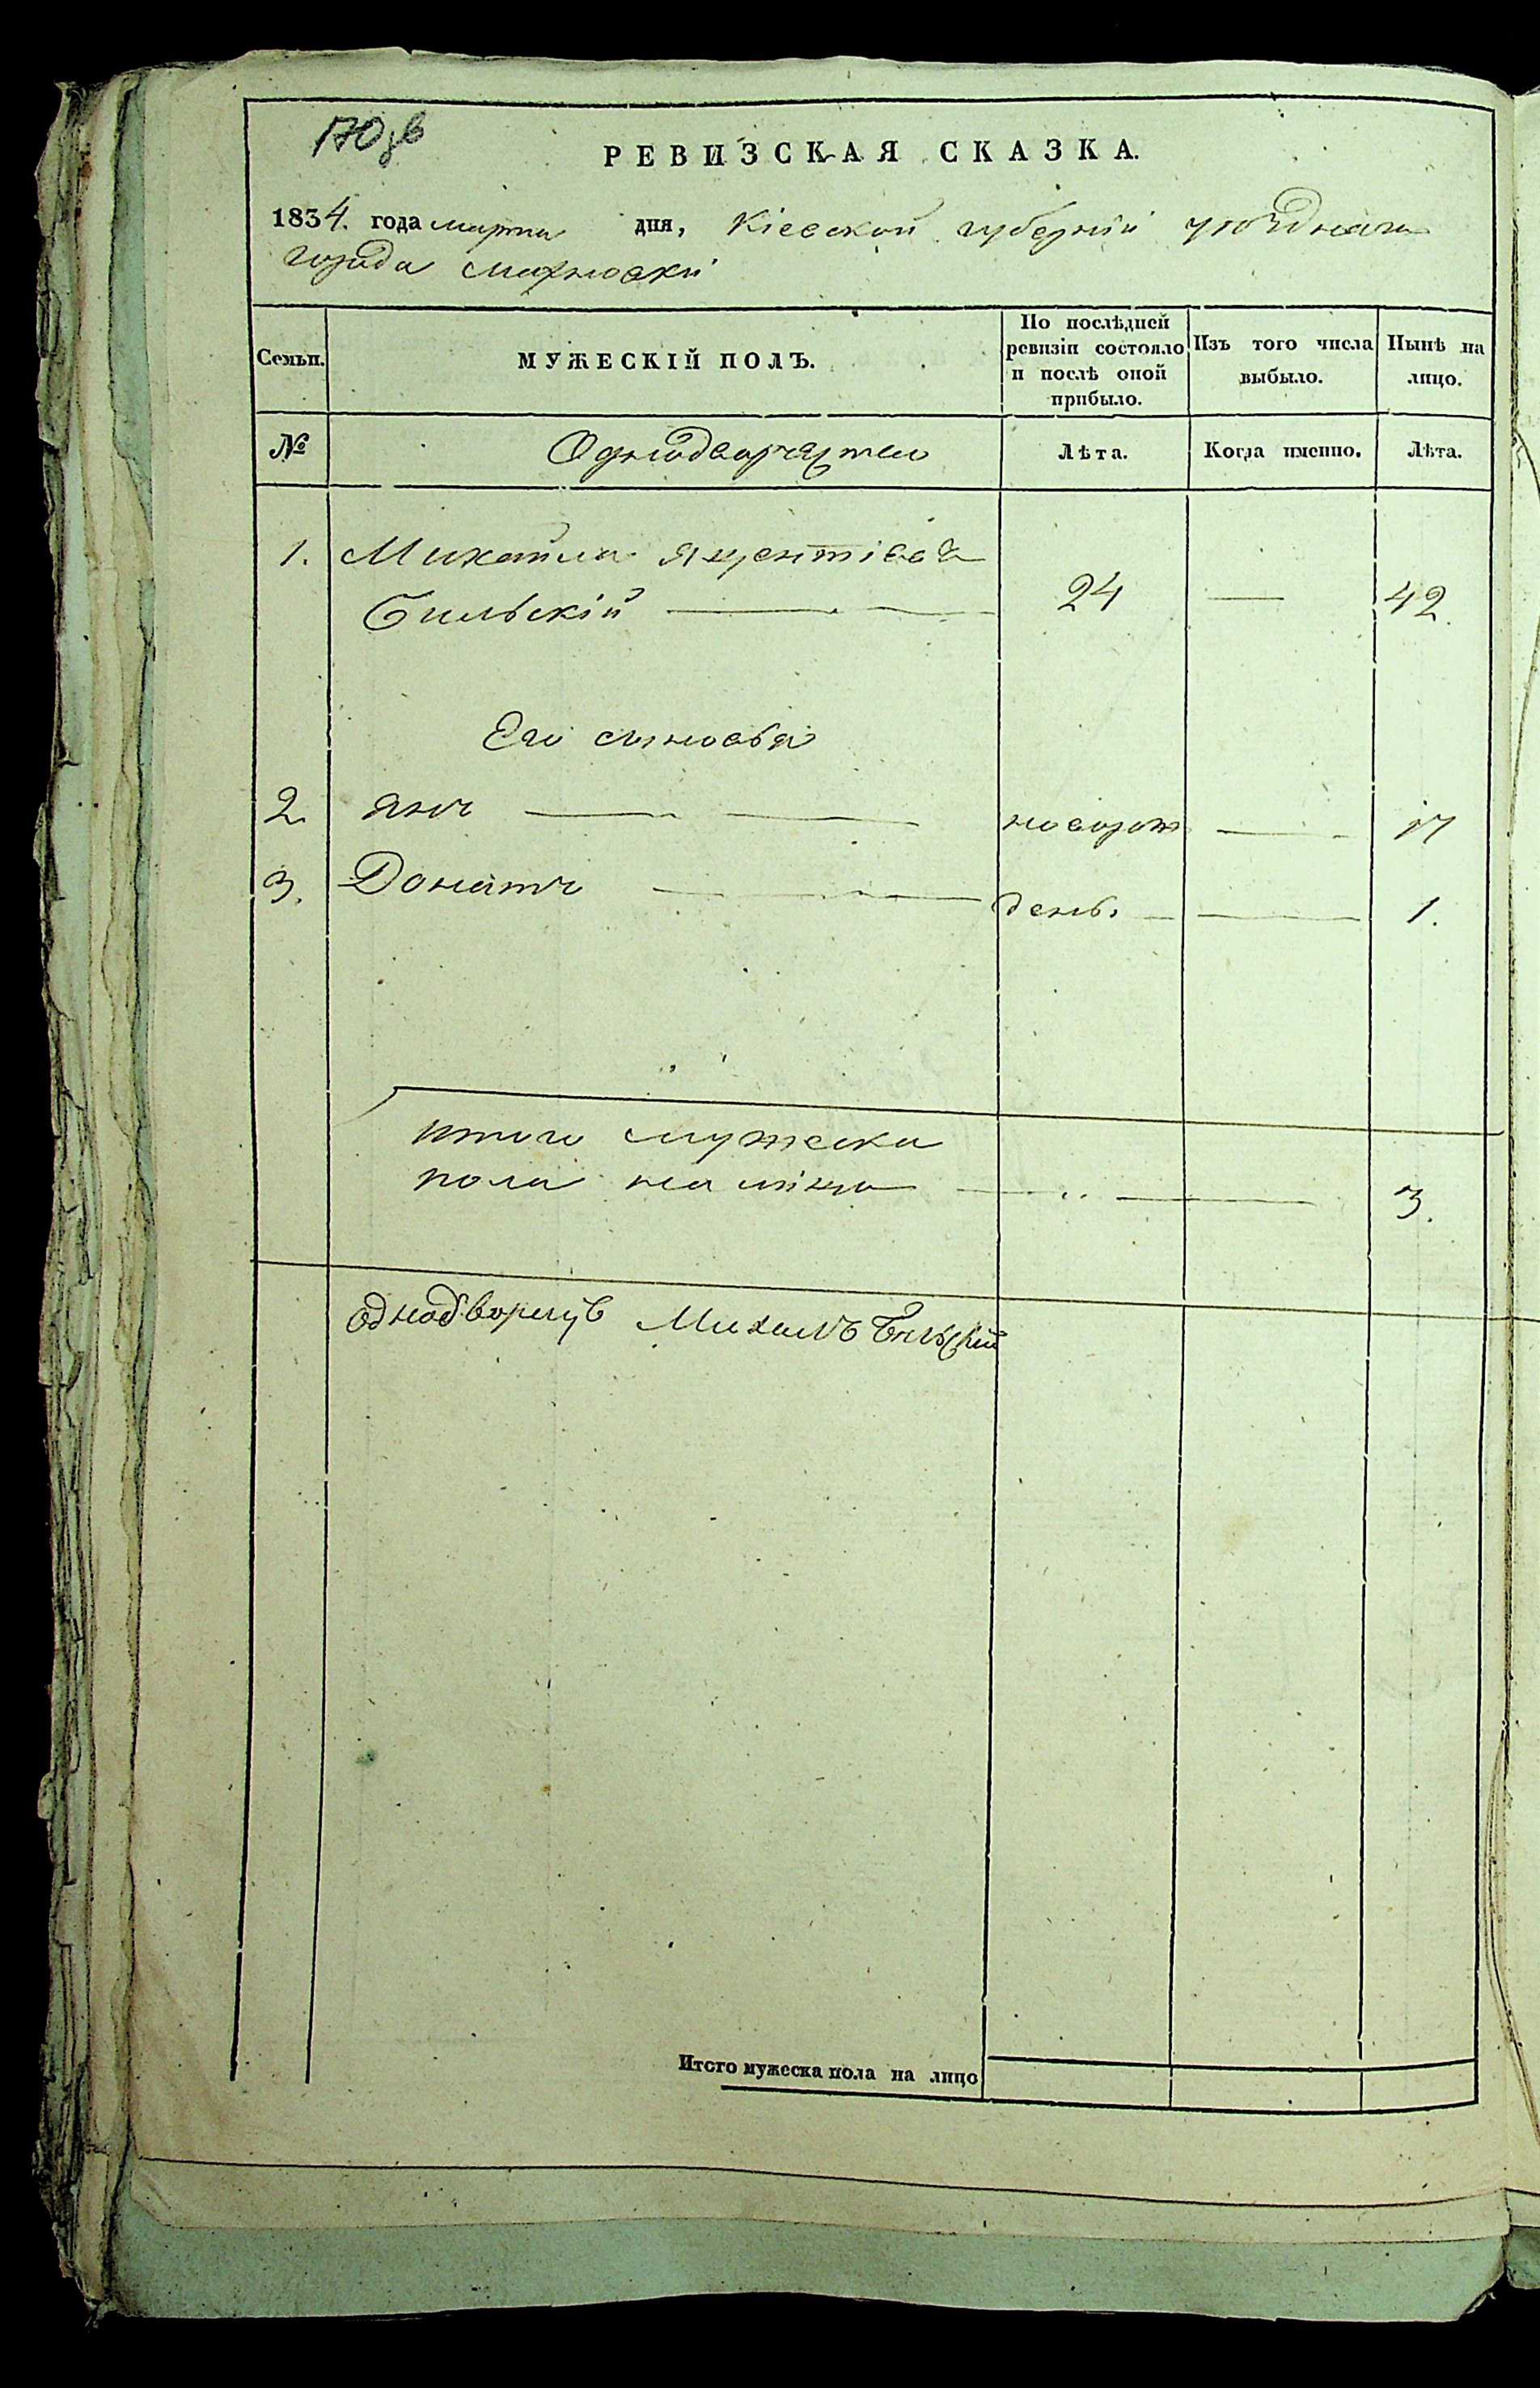 170зв
РЕВИЗСКАЯ СКАЗКА.
1834. года марта дня, Кіевской губерніи уѣзднаго
города Махновки
Семьи. МУЖЕСКІЙ ПОЛЪ. По послѣдней ревизіи состояло и послѣ оной прибыло. Изъ того числа выбыло. Нынѣ на лицо.
№ Лѣта. Когда именно. Лѣта.
1. Михайла
Бильскій 24 42.
Его сыновья
2. Янъ новорож 17
3. Донатъ денъ. 1.
Итого мужеска
пола на лицо 3.
Михаилъ Бильскій
Итого мужеска пола на лицо